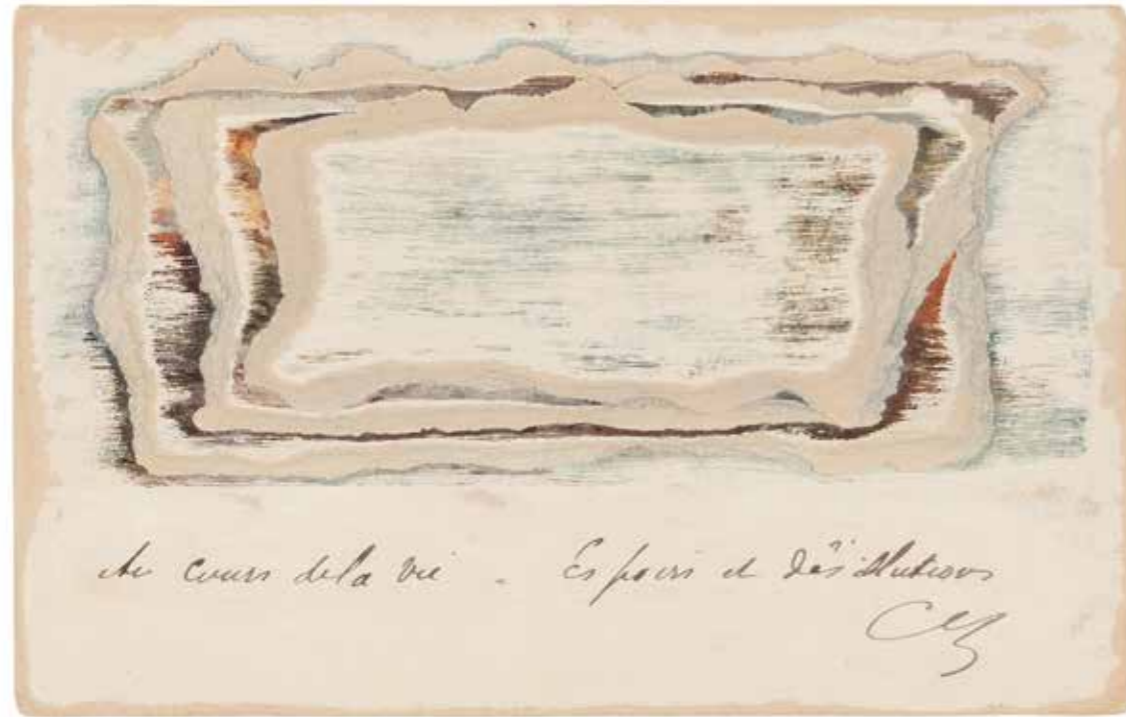 Au cours de la vie - Espoirs et Désillusions